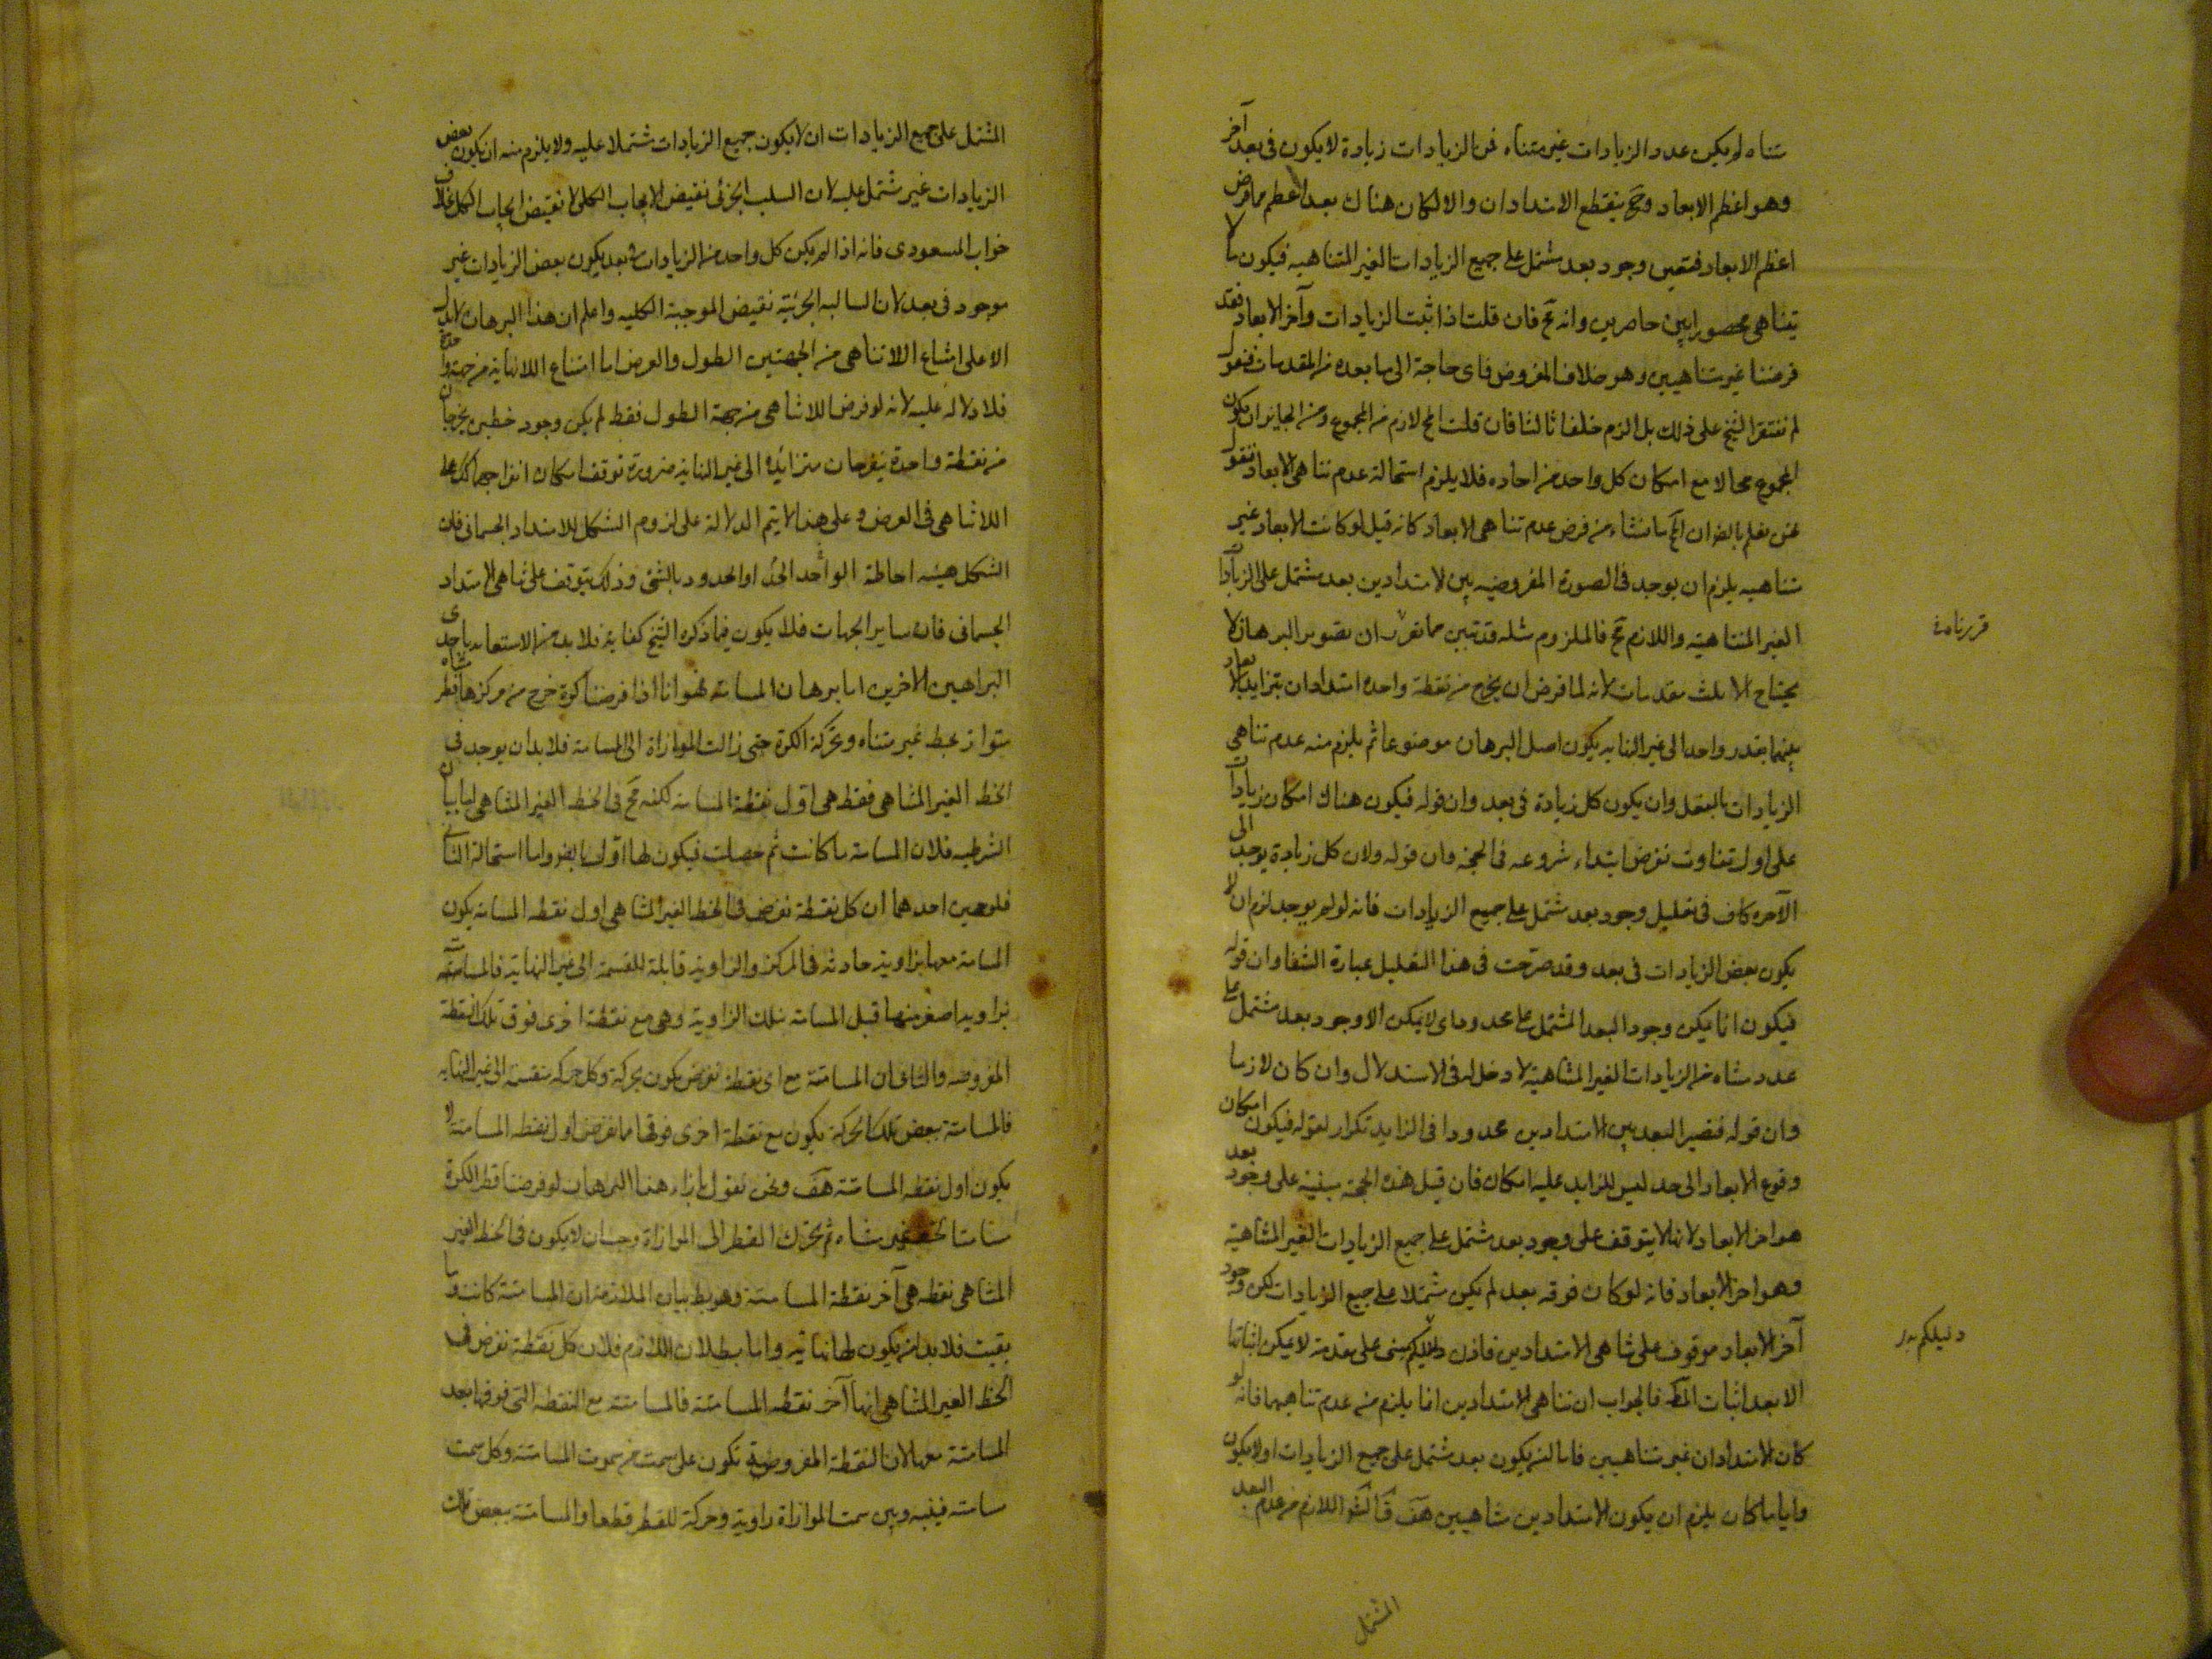 متناه لم يكن عدد الزيادات غير متناه فمن الزيادات زيادة لا يكون فى بعد آخر
وهو اعظم الابعاد وح ينقطع الامتدادان والا لكان هناك بعد اعظم مما فرض
اعظم الابعاد فتعين وجود بعد مشتمل على جميع الزيادات الغير المتناهيه فيكون ما لا
يتناهى محصورا بين حاصرين وانه مح فان قلت اذا ثبت الزيادات وآخر الابعاد فقد
فرضنا غير متناهيين وهو خلاف المفروض فاى حاجة الى ما بعده من المقدمات فنقول
لم يقتصر الشيخ على ذلك بل الزم خلفا ثالثا فان قلت المح لازم من المجموع ومن الجايز ان يكون
المجموع محالا مع امكان كل واحد من احاده فلا يلزم استحالة عدم تناهى الابعاد فنقول
نحن نعلم بالضر ان المح ما نشاء من فرض عدم تناهى الابعاد كانه قيل لو كانت الابعاد غير
متناهيه يلزم ان يوجد فى الصورة المفروضه بين الامتدادين بعد مشتمل على الزيادات
الغير المتناهيه واللازم مح فالملزوم مثله قد تبين مما تقرر ان تصوير البرهان لا
يحتاج الا ثلث مقدمات لانه لما فرض ان يخرج من نقطة واحدة امتدادان يتزايد الابعاد
بينهما بقدر واحد الى غير النهايه يكون اصل البرهان موضوعا ثم يلزم منه عدم تناهى
الزيادات بالفعل وان يكون كل زيادة فى بعد وان قوله فيكون هناك امكان زيادات
على اول تفاوت نفرض ابتداء شروعه فى الحجة وان قوله ولان كل زيادة يوجد الى
الآخره كاف فى تعليل وجود بعد مشتمل على جميع الزيادات فانه لو لم يوجد لزم ان لا
يكون بعض الزيادات فى بعد وقد صرحت فى هذا التعليل عبارة الشفا وان قوله
فيكون انما يمكن وجود البعد المشتمل على محدود اى لا يمكن الا وجود بعد مشتمل على
عدد متناه من الزيادات الغير المتناهية لا دخل له فى الاستدلال وان كان لازما
وان قوله فتصير البعد بين الامتدادين محدودا فى الزايد تكرار لقوله فيكون امكان
وقوع الابعاد الى حد ليس للزايد عليه امكان فان قيل هذه الحجة مبنية على وجود بعد
هو آخر الابعاد لانها لا يتوقف على وجود بعد مشتمل على جميع الزيادات الغير المتناهية
وهو آخر الابعاد فانه لو كان فوقه بعد لم يكن مشتملا على جميع الزيادات لكن وجود
آخر الابعاد موقوف على تناهى الامتدادين فاذن دليلكم مبنى على مقدمة لا يمكن اثباتها
الا بعد اثبات المط فالجواب ان تناهى الامتدادين انما يلزم من عدم تناهيهما فانه لو
كان الامتدادان غير متناهيين فاما ان يكون بعد مشتمل على جميع الزيادات اولا يكون
وايا ما كان يلزم ان يكون الامتدادين متناهيين هف اللازم من عدم البعد
دليلكم
المشتمل
المشتمل على جميع الزيادات ان لا يكون جميع الزيادات مشتملا عليه ولا يلزم منه ان يكون بعض
الزيادات غير مشتمل عليه لان السلب الجزئى نقيض الايجاب الكلى لا نقيض ايجاب الكل بخلاف
جواب المسعودى فانه اذا لم يكن كل واحد من الزيادات فى بعد يكون بعض الزيادات غير
موجود فى بعد لان السالبه الجزئية نقيض الموجبة الكليه واعلم ان هذا البرهان لا يدل
الا على امتناع اللاتناهى من الجهتين الطول والعرض اما امتناع اللانهاية من جهة واحدة
فلا دلاله عليه لانه لو فرض اللاتناهى من جهة الطول فقط لم يكن وجود خطين يخرجان
من نقطة واحدة ينفرجان متزائدا الى غير النهاية ضرورة توقف امكان انفراجهما كذلك على
اللاتناهى فى العرض وعلى هذا لا يتم الدلالة على لزوم الشكل للامتداد الجسمانى فان
الشكل هيئه احاطة الواحد الحد او الحدود بالشئ وذلك يتوقف على تناهى الامتداد
الجسمانى فان ساير الجهات فلا يكون فيما ذكره الشيخ كفاية فلا بد من الاستعانه باحدى
البراهين الاخرين اما برهان المسامته فهو انا اذا فرضنا كرة خرج من مركزها قطر متناه
متواز لخط غير متناه وتحركة الكرة حتى زالت الموازاة الى المسامته فلا بد ان يوجد فى
الخط الغير المتناهى فقط هى اول نقطة المسامته لكنه مح فى الخط الغير المتناهى اما بيان
الشرطيه فلان المسامته ما كانت ثم حصلت فيكون لها اول بالضرو واما استحالة التالى
فلوجهين احدهما ان كل نقطة نفرض فى الخط الغير المتناهى اول نقطه المسامته يكون
المسامته معها بزاوية حادثه فى المركز والزاوية قابلة للقسمة الى غير النهاية فالمسامته
بزاويه اصغر منها قبل المسامته بتلك الزاوية وهى مع نقطة اخرى فوق تلك النقطة
المفروضه والثانى ان المسامتة مع اى نقطة نفرض يكون بحركة وكل حركه منقسمة الى غير النهايه
فالمسامتة ببعض تلك الحركة يكون مع نقطة اخرى فوقها فما نفرض اول نقطه المسامته لا
يكون اول نقطه المسامتة هف ونحن نقول بازاء هذا البرهان لو فرضنا قطر الكرة
مسامتا لخط غير متناه ثم يتحرك القطر الى الموازاة وجب ان لا يكون فى الخط الغير
المتناهى نقطه هى آخر نقطة المسامتة وهو بط بيان الملازمة ان المسامتة كانت وما
بقيت فلا بد ان يكون لها نهايه واما بطلان اللازم فلان كل نقطة نفرض فى
الخط الغير المتناهى انها آخر نقطه المسامتة فالمسامتة مع النقطه التى فوقها بعد
المسامتة معها لان النقطة المفروضة تكون على سمت من سموت المسامتة وكل سمت
مسامته فبينه وبين سمت الموازاة زاوية وحركة للقطر قطعا والمسامتة ببعض تلك